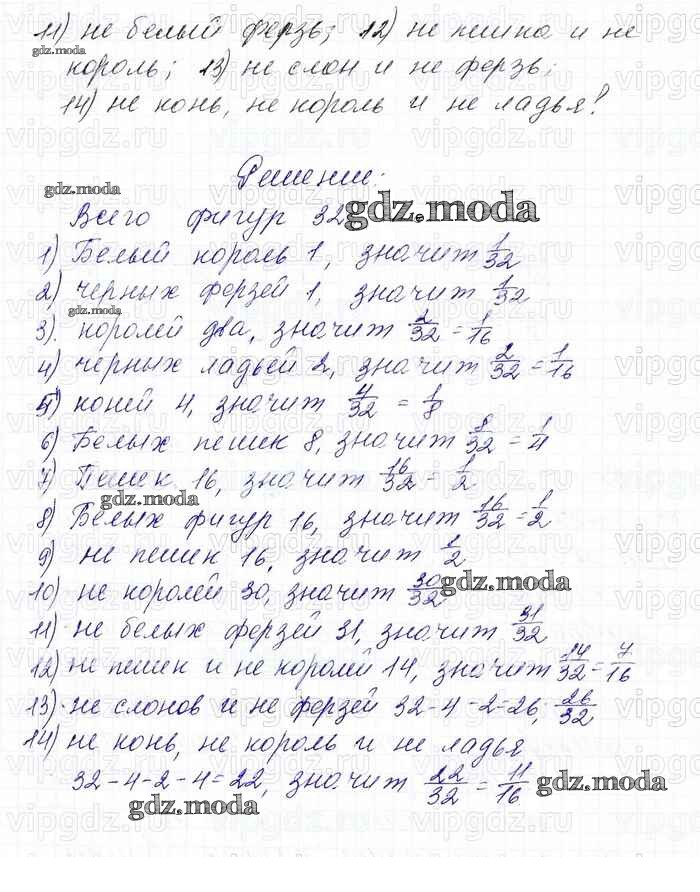 11) не белый ферзь; 12) не пешка и не
король; 13) не слон и не ферзь;
14) не конь, не король и не ладья?
Решение:
Всего фигур 32
1) Белый король 1, значит 1/32
2) черных ферзей 1, значит 1/32
3). королей два, значит 2/32 = 1/16
4) черных ладьей 2, значит 2/32 = 1/16
5) коней 4, значит 4/32 = 1/8
6) Белых пешек 8, значит 8/32 = 1/4
7) Пешек 16, значит 16/32 = 1/2
8) Белых фигур 16, значит 16/32 = 1/2
9) не пешек 16, значит 1/2
10) не королей 30, значит 30/32
11) не белых ферзей 31, значит 31/32
12) не пешек и не королей 14, значит 14/32 = 7/16
13) не слонов и не ферзей 32-4-2=26, 26/32
14) не конь, не король и не ладья
32-4-2-4=22, значит 22/32 = 11/16
gdz.moda
gdz.moda
gdz.moda
gdz.moda
gdz.moda
gdz.moda
gdz.moda
gdz.moda
vipgdz.ru